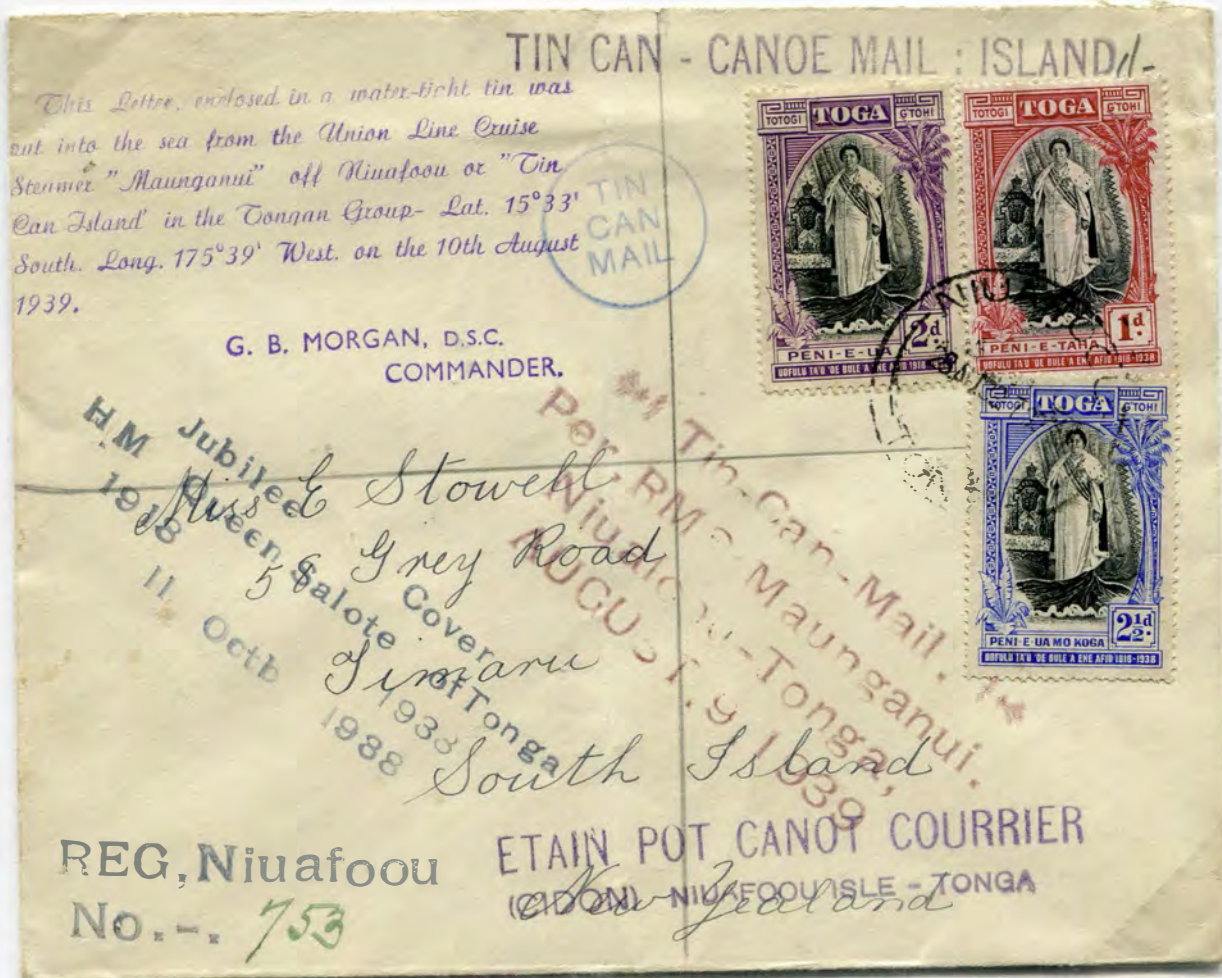 TIN CAN - CANOE MAIL : ISLAND
This Letter, enclosed in a water-tight tin was
put into the sea from the Union Line Cruise
Steamer "Maunganui" off Niuafoou or "Tin
Can Island' in the Tongan Group- Lat. 15°33'
South. Long. 175°39' West. on the 10th August
1939.
G. B. MORGAN, D.S.C.
COMMANDER.
TIN
CAN
MAIL
TOTOGI TOGA G'TOHI
2d.
PENI-E-UA
UOFULU TA'U 'OE BULE A ENE AFIO 1918-1938
TOTOGI TOGA G'TOHI
1d.
PENI-E-TAHA
UOFULU TA'U 'OE BULE A ENE AFIO 1918-1938
TOTOGI TOGA G'TOHI
2½d.
PENI-E-UA MO KOGA
UOFULU TA'U 'OE BULE A ENE AFIO 1918-1938
Jubilee Cover of Tonga
H M Queen Salote 1938
1918
11 Octb 1938
Tin-Can-Mail.
Per. RMS Maunganui.
Niuafoou-Tonga,
AUGUST.9.1939
Miss E Stowell
58 Grey Road
Timaru
South Island
New Zealand
REG, Niuafoou
No.-. 753
ETAIN POT CANOT COURRIER
NIUAFOOU ISLE - TONGA